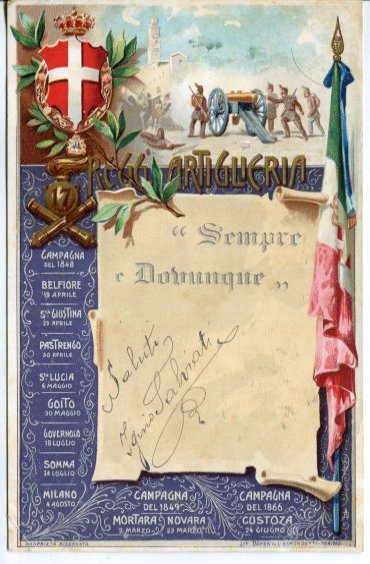 REGG. ARTIGLIERIA
17
" Sempre
e Dovunque "
Saluti
CAMPAGNA
DEL 1848
BELFIORE
19 APRILE
Sta GIUSTINA
23 APRILE
PASTRENGO
30 APRILE
Sta LUCIA
6 MAGGIO
GOITO
30 MAGGIO
GOVERNOLO
18 LUGLIO
SOMMA
24 LUGLIO
MILANO
4 AGOSTO
CAMPAGNA
DEL 1849
MORTARA NOVARA
2 MARZO 23 MARZO
CAMPAGNA
DEL 1866
CUSTOZA
24 GIUGNO
PROPRIETÀ RISERVATA
LIT. DOYEN DI L. SIMONDETTI - TORINO